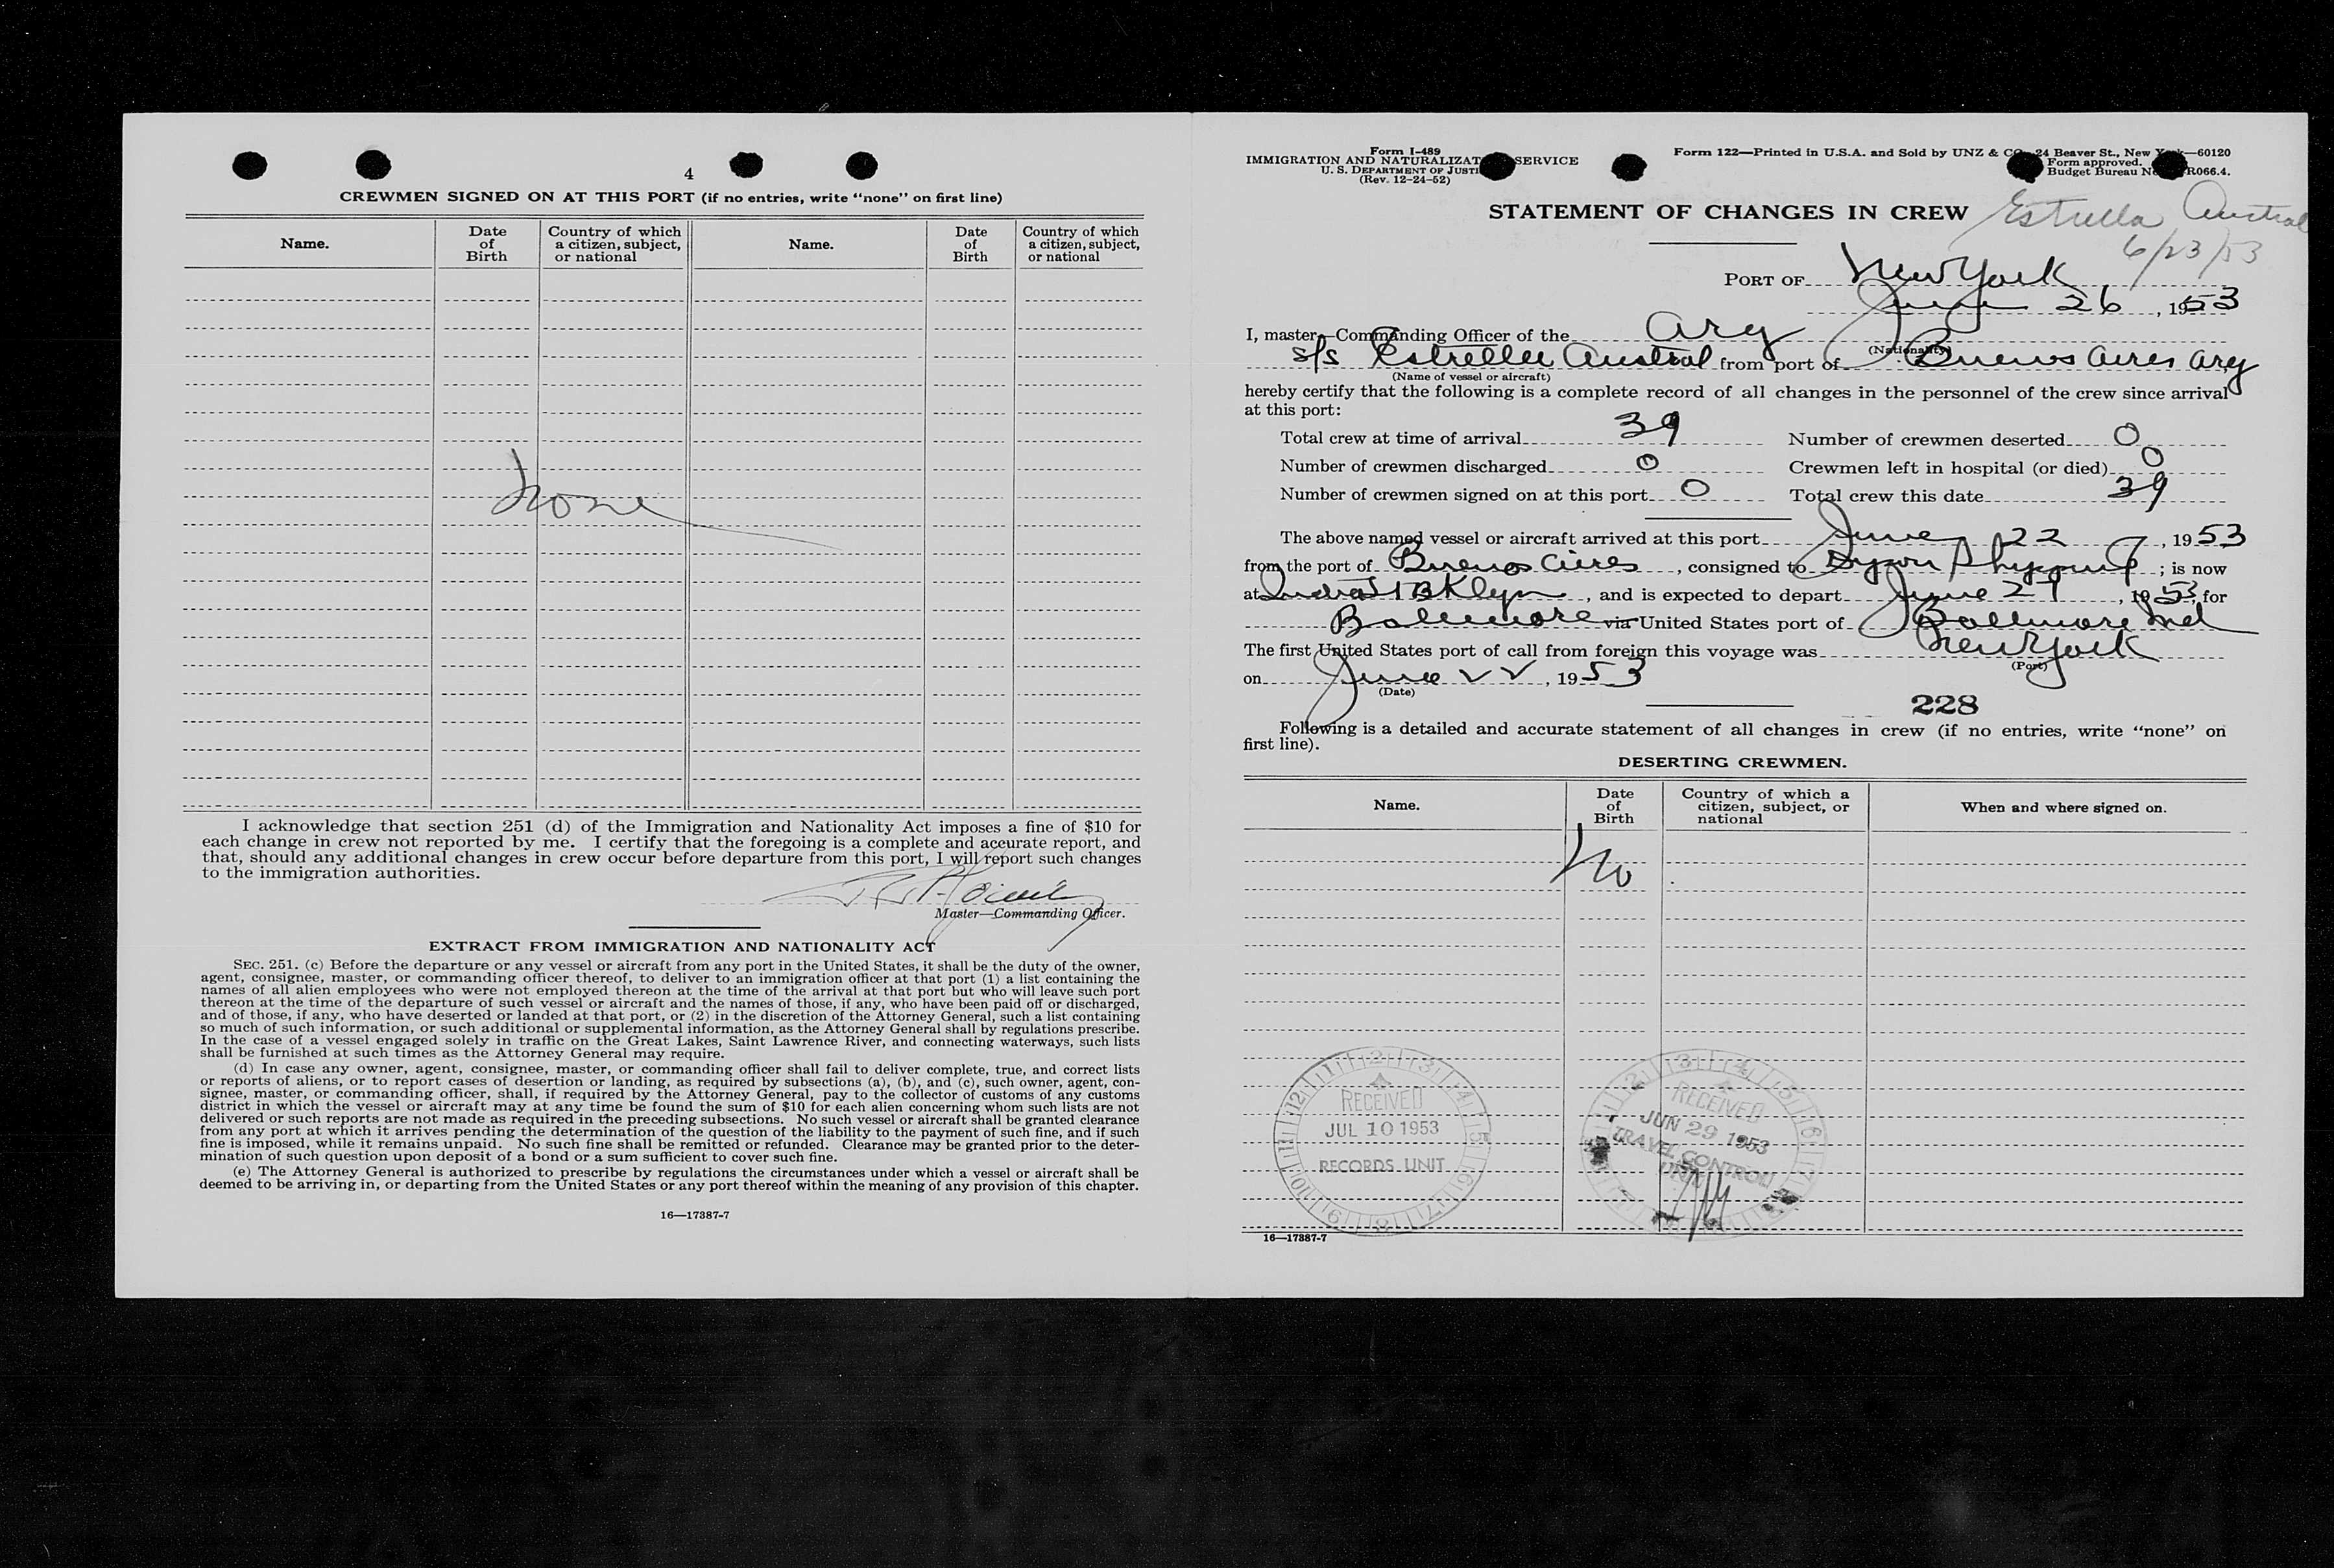 4
CREWMEN SIGNED ON AT THIS PORT (if no entries, write “none” on first line)
Name.
Date of Birth
Country of which a citizen, subject, or national
Name.
Date of Birth
Country of which a citizen, subject, or national
none
I acknowledge that section 251 (d) of the Immigration and Nationality Act imposes a fine of $10 for
each change in crew not reported by me. I certify that the foregoing is a complete and accurate report, and
that, should any additional changes in crew occur before departure from this port, I will report such changes
to the immigration authorities.
Master—Commanding Officer.
EXTRACT FROM IMMIGRATION AND NATIONALITY ACT
SEC. 251. (c) Before the departure or any vessel or aircraft from any port in the United States, it shall be the duty of the owner,
agent, consignee, master, or commanding officer thereof, to deliver to an immigration officer at that port (1) a list containing the
names of all alien employees who were not employed thereon at the time of the arrival at that port but who will leave such port
thereon at the time of the departure of such vessel or aircraft and the names of those, if any, who have been paid off or discharged,
and of those, if any, who have deserted or landed at that port, or (2) in the discretion of the Attorney General, such a list containing
so much of such information, or such additional or supplemental information, as the Attorney General shall by regulations prescribe.
In the case of a vessel engaged solely in traffic on the Great Lakes, Saint Lawrence River, and connecting waterways, such lists
shall be furnished at such times as the Attorney General may require.
(d) In case any owner, agent, consignee, master, or commanding officer shall fail to deliver complete, true, and correct lists
or reports of aliens, or to report cases of desertion or landing, as required by subsections (a), (b), and (c), such owner, agent, con-
signee, master, or commanding officer, shall, if required by the Attorney General, pay to the collector of customs of any customs
district in which the vessel or aircraft may at any time be found the sum of $10 for each alien concerning whom such lists are not
delivered or such reports are not made as required in the preceding subsections. No such vessel or aircraft shall be granted clearance
from any port at which it arrives pending the determination of the question of the liability to the payment of such fine, and if such
fine is imposed, while it remains unpaid. No such fine shall be remitted or refunded. Clearance may be granted prior to the deter-
mination of such question upon deposit of a bond or a sum sufficient to cover such fine.
(e) The Attorney General is authorized to prescribe by regulations the circumstances under which a vessel or aircraft shall be
deemed to be arriving in, or departing from the United States or any port thereof within the meaning of any provision of this chapter.
16—17387-7
Form I-489
IMMIGRATION AND NATURALIZAT SERVICE
U. S. DEPARTMENT OF JUSTI
(Rev. 12-24-52)
Form 122—Printed in U.S.A. and Sold by UNZ & CO 24 Beaver St., New Y k—60120
Form approved.
Budget Bureau N R066.4.
STATEMENT OF CHANGES IN CREW
Estrella Austral
6/23/53
PORT OF New York
June 26, 1953
I, master—Commanding Officer of the Arg
(Nationality)
s/s Estrella Austral from port of Buenos Aires Arg
(Name of vessel or aircraft)
hereby certify that the following is a complete record of all changes in the personnel of the crew since arrival
at this port:
Total crew at time of arrival 39 Number of crewmen deserted 0
Number of crewmen discharged 0 Crewmen left in hospital (or died) 0
Number of crewmen signed on at this port 0 Total crew this date 39
The above named vessel or aircraft arrived at this port June 22, 1953
from the port of Buenos Aires, consigned to Shipping; is now
at BKlyn, and is expected to depart June 27, 1953, for
Baltimore via United States port of Baltimore Md
The first United States port of call from foreign this voyage was New York
(Port)
on June 22, 1953
(Date)
228
Following is a detailed and accurate statement of all changes in crew (if no entries, write “none” on
first line).
DESERTING CREWMEN.
Name.
Date of Birth
Country of which a citizen, subject, or national
When and where signed on.
No
RECEIVED
JUL 10 1953
RECORDS UNIT
RECEIVED
JUN 29 1953
TRAVEL CONTROL
UNIT
16—17387-7